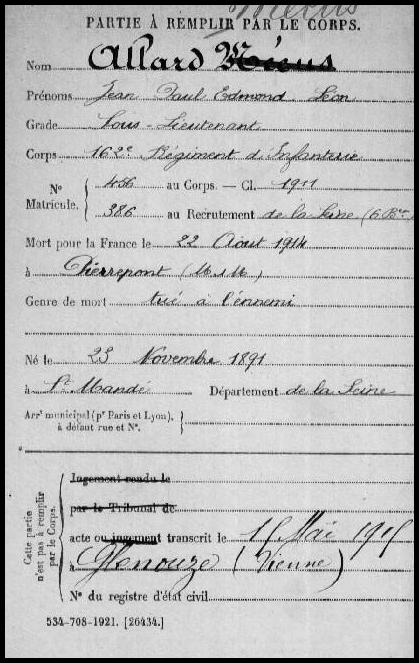 Méeus
PARTIE À REMPLIR PAR LE CORPS.
Nom Allard Méeus
Prénoms Jean Paul Edmond Léon
Grade Sous-Lieutenant
Corps 162e Régiment d'Infanterie
N° Matricule. { 456 au Corps. — Cl. 1911
386 au Recrutement de la Seine (6 Bau)
Mort pour la France le 22 Août 1914
à Pierrepont (M & M)
Genre de mort tué à l'ennemi
Né le 23 Novembre 1891
à St Mandé Département de la Seine
Arrt municipal (pr Paris et Lyon), à défaut rue et N°. {
Cette partie n'est pas à remplir par le Corps. {
Jugement rendu le
par le Tribunal de
acte ou jugement transcrit le 15 Mai 1915
à Glenouze (Vienne)
N° du registre d'état civil
534-708-1921. [26434.]